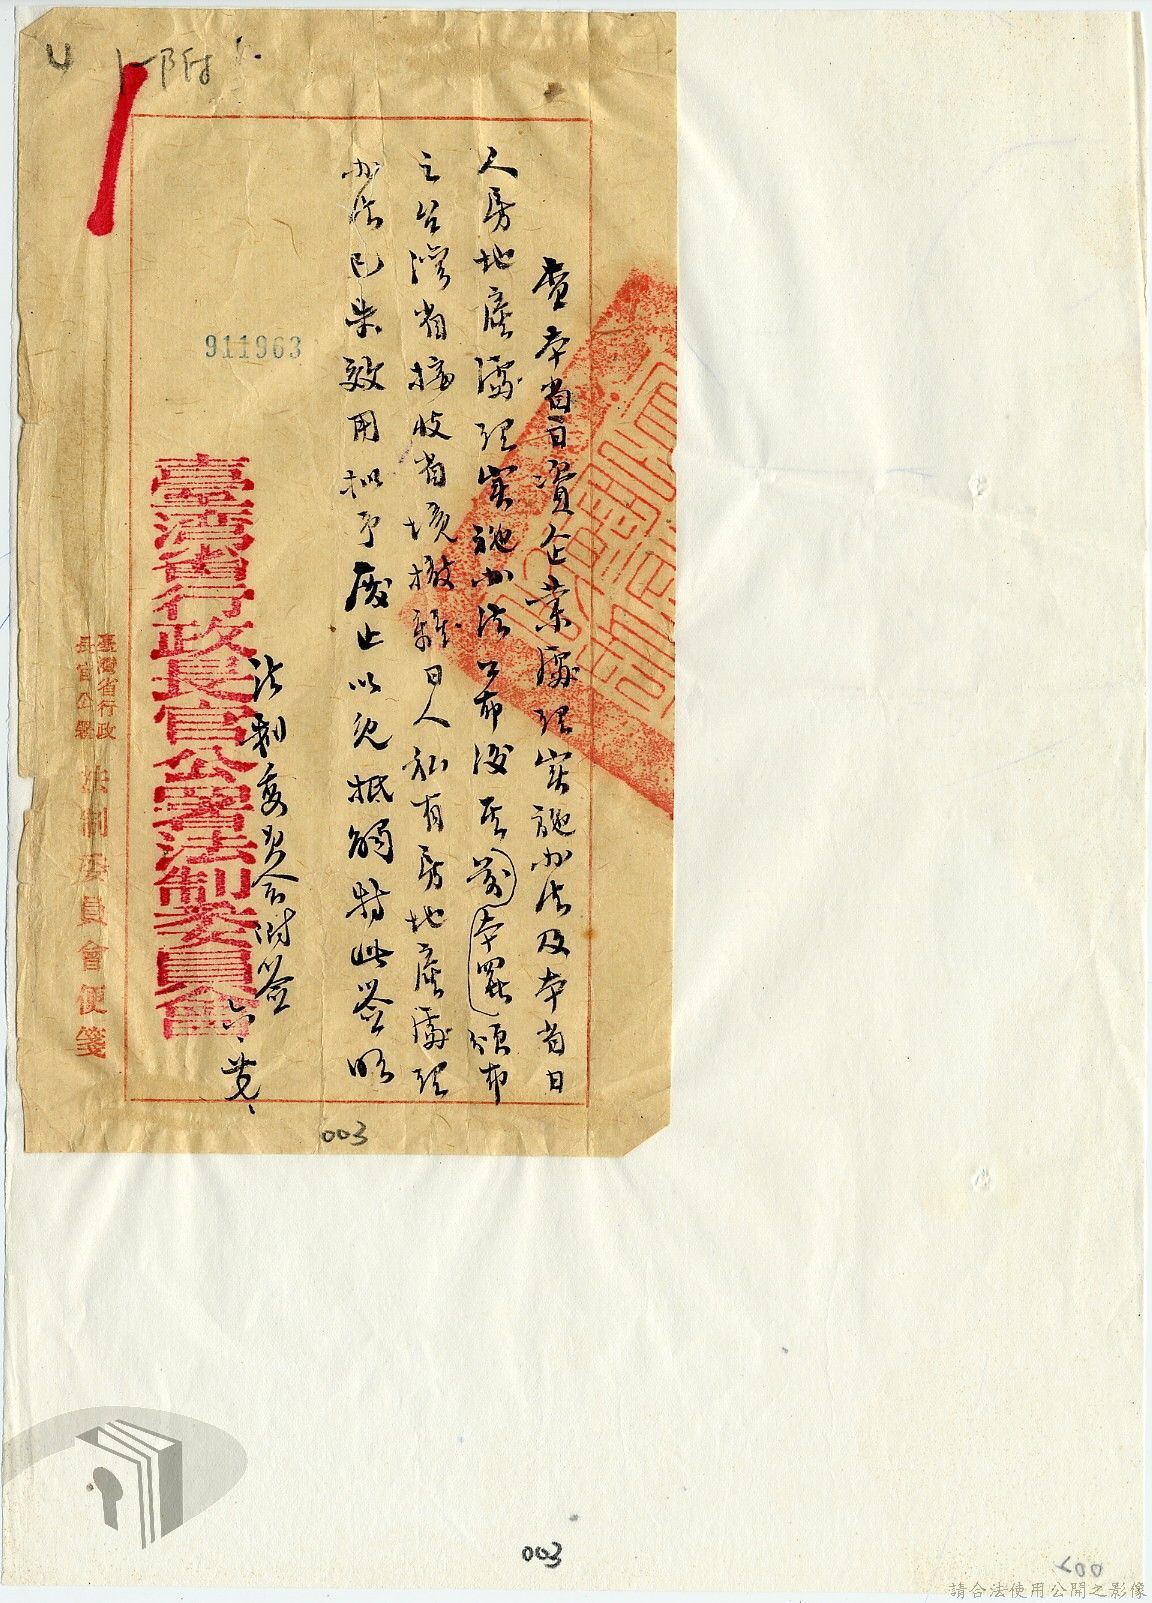 附
查本省日資企業處理实施办法及本省日
人房地產處理实施办法公布後前本署頒布
之台灣省接收省境撤離日人私有房地產處理
办法已失效用拟予廢止以免抵觸特此签明
法制委員会附签
911963
臺灣省行政長官公署法制委員會
臺灣省行政
長官公署
法制委員會便箋
003
003
700
請合法使用公開之影像